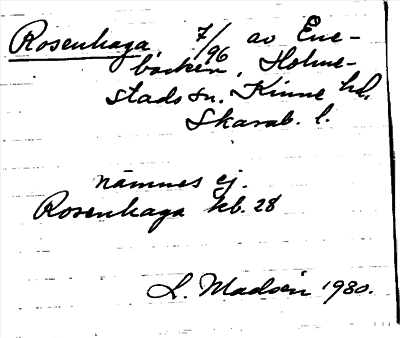 Rosenhaga, 7/96 av Ene-
backen, Holme-
stads sn. Kinne hd.
Skarab. l.
nämnes ej.
Rosenhaga kb. 28
L. Madsén 1980.